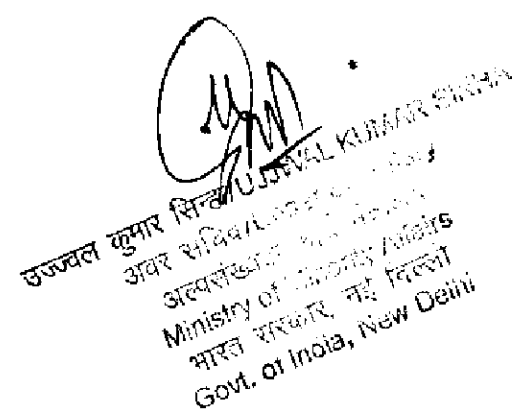 उज्ज्वल कुमार सिन्हा/UJJWAL KUMAR SINHA
अवर सचिव/
अल्पसंख्यक
Ministry of Minority Affairs
भारत सरकार, नई दिल्ली
Govt. of India, New Delhi